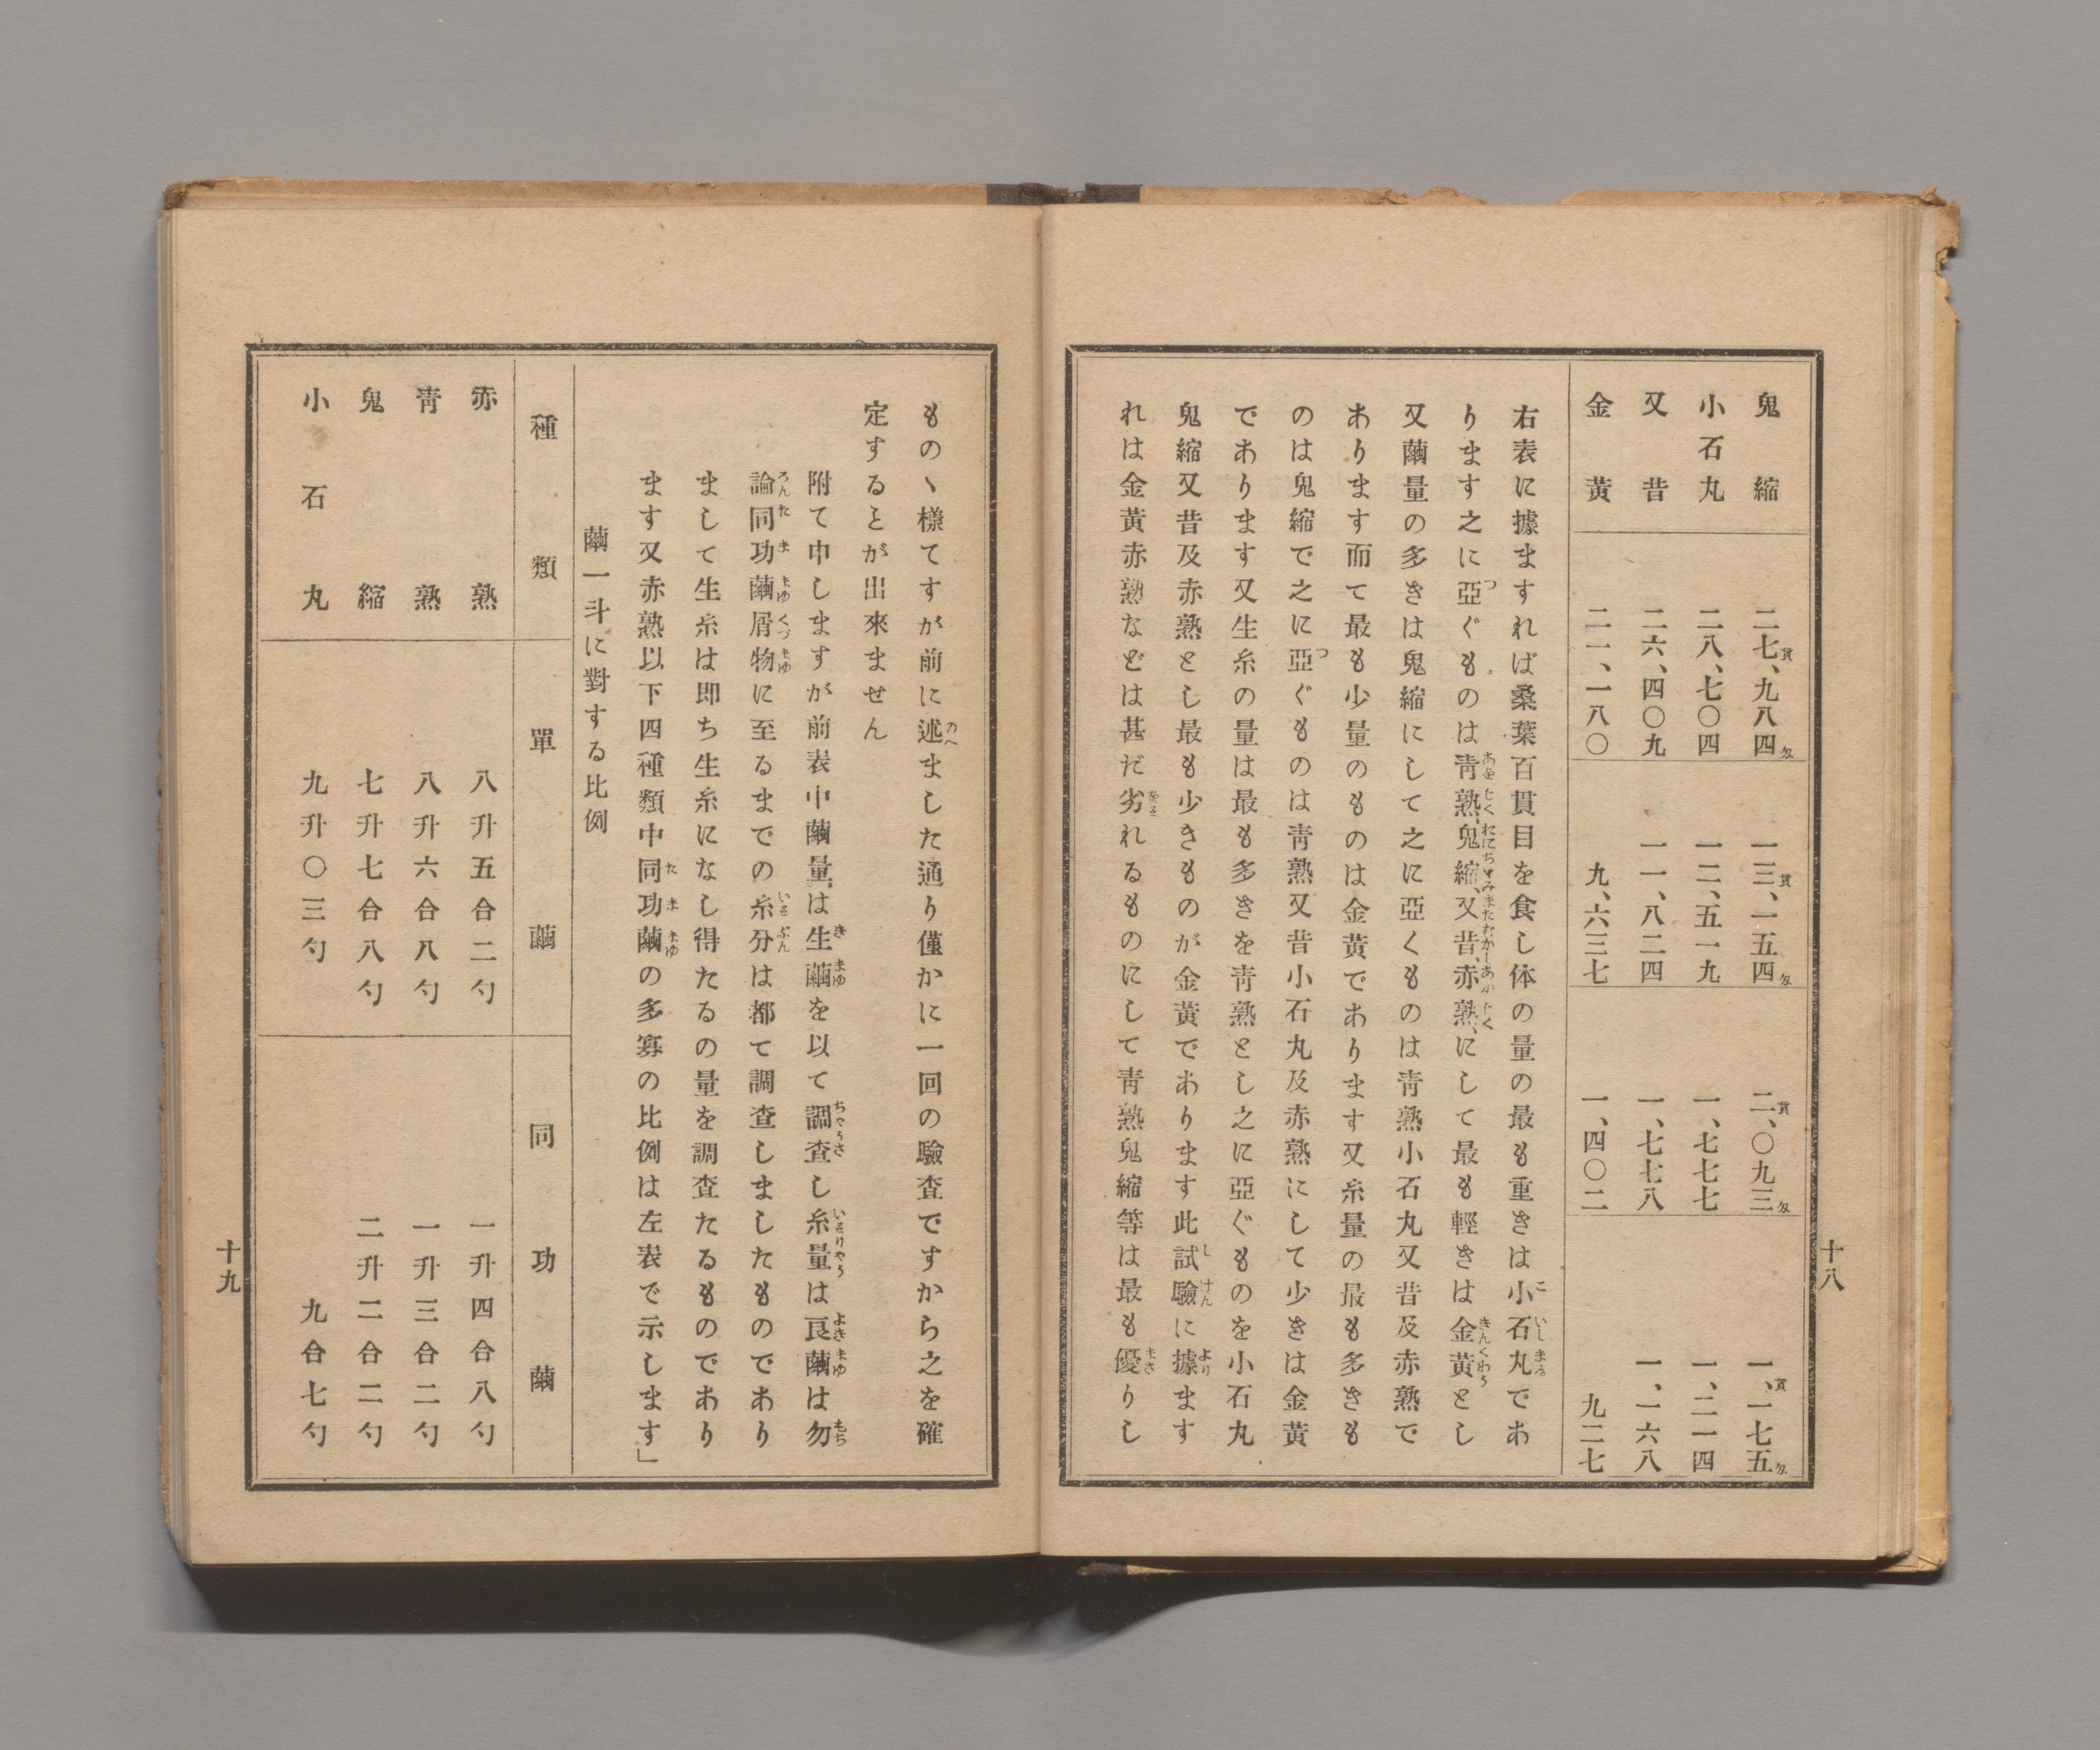 鬼縮 二七、九八四 一三、一五四 二、〇九三 一、一七五
小石丸 二八、七〇四 一二、五一九 一、七七七 一、二一四
又昔 二六、四〇九 一一、八二四 一、七七八 一、一六八
金黃 二一、一八〇 九、六三七 一、四〇二 九二七
右表に據ますれば桑葉百貫目を食し体の量の最も重きは小石丸であ
ります之に亞ぐものは靑熟、鬼縮、又昔、赤熟、にして最も輕きは金黃とし
又繭量の多きは鬼縮にして之に亞くものは靑熟小石丸又昔及赤熟で
あります而て最も少量のものは金黃であります又糸量の最も多きも
のは鬼縮で之に亞ぐものは靑熟又昔小石丸及赤熟にして少きは金黃
であります又生糸の量は最も多きを靑熟とし之に亞ぐものを小石丸
鬼縮又昔及赤熟とし最も少きものが金黃であります此試驗に據ます
れは金黃赤熟などは甚だ劣れるものにして靑熟鬼縮等は最も優りし
十八
ものヽ樣てすが前に述ました通り僅かに一回の驗査ですから之を確
定するとが出來ません
附て申しますが前表中繭量は生繭を以て調査し糸量は良繭は勿
論同功繭屑物に至るまでの糸分は都て調査しましたものであり
まして生糸は即ち生糸になし得たるの量を調査たるものであり
ます又赤熟以下四種類中同功繭の多寡の比例は左表で示します」
繭一斗に對する比例
種類 單繭 同功繭
赤熟 八升五合二勺 一升四合八勺
靑熟 八升六合八勺 一升三合二勺
鬼縮 七升七合八勺 二升二合二勺
小石丸 九升〇三勺 九合七勺
十九